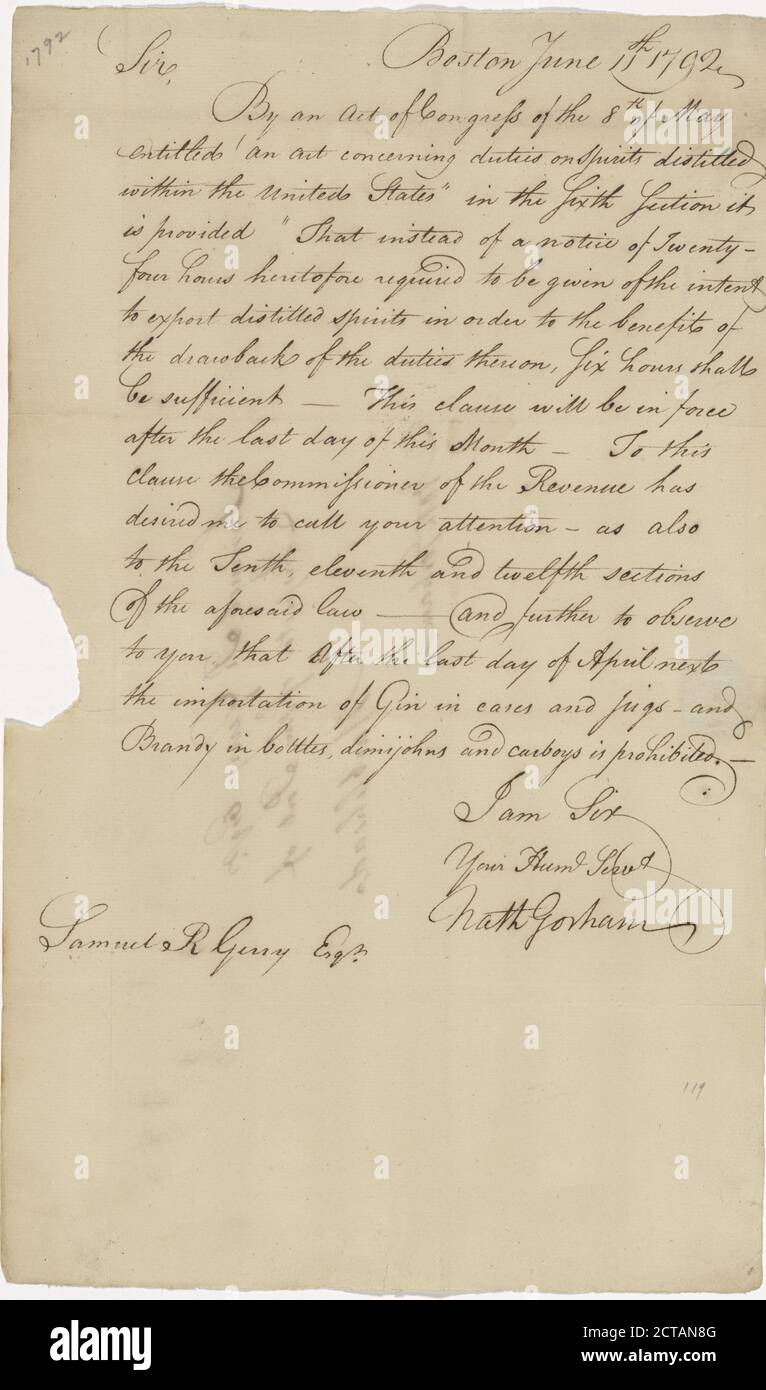 1792
Boston June 11th 1792
Sir,
By an Act of Congress of the 8th of May
entitled "an act concerning duties on spirits distilled
within the United States" in the Sixth Section it
is provided "That instead of a notice of Twenty-
four hours heretofore required to be given of the intent
to export distilled spirits in order to the benefit of
the drawback of the duties thereon, Six hours shall
be sufficient — This clause will be in force
after the last day of this Month — To this
clause the Commissioner of the Revenue has
desired me to call your attention — as also
to the Tenth, eleventh and twelfth sections
of the aforesaid law — and further to observe
to you, that After the last day of April next
the importation of Gin in cases and jugs — and
Brandy in bottles, dimijohns and carboys is prohibited. —
I am Sir
Your Huml Servt
Nath Gorham
Samuel R Gerry Esqr
119
alamy
Image ID: 2CTAN8G
www.alamy.com